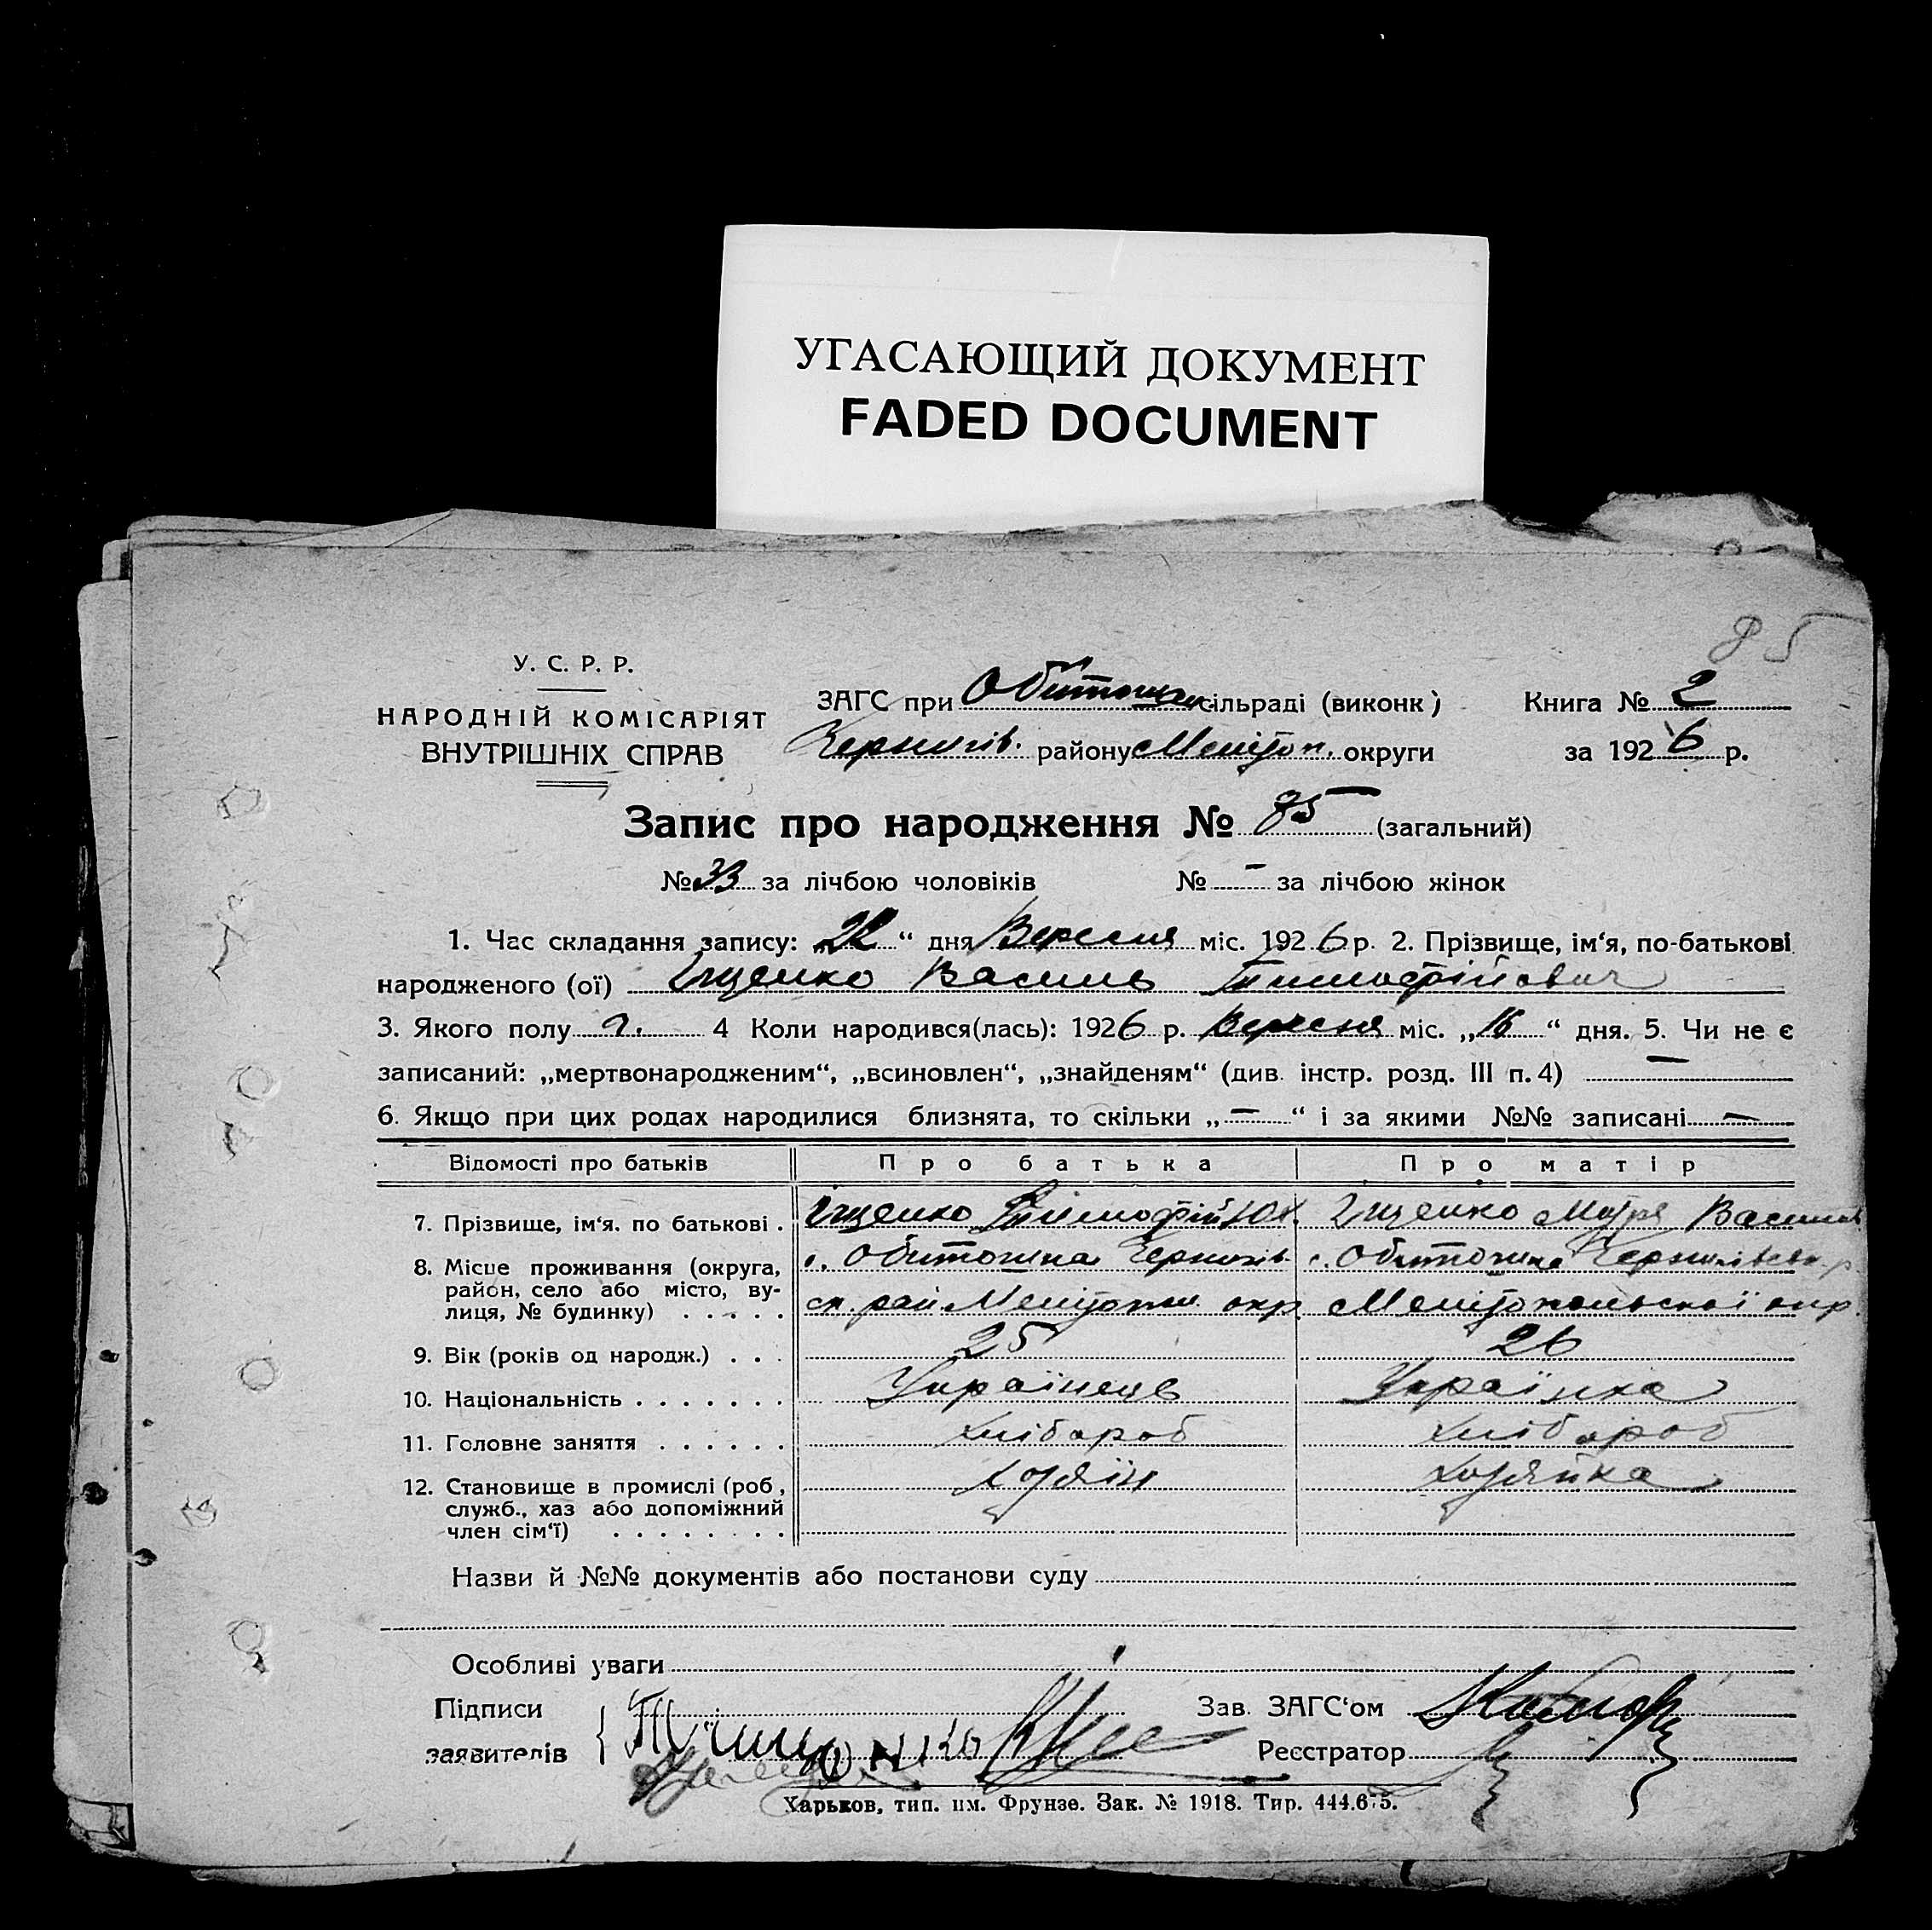 УГАСАЮЩИЙ ДОКУМЕНТ
FADED DOCUMENT
85
У. С. Р. Р.
НАРОДНІЙ КОМІСАРІЯТ
ВНУТРІШНІХ СПРАВ
ЗАГС при Обиточен сільраді (виконк) Книга № 2
Черниг̇ів. району Мелітоп. округи за 1926 р.
Запис про народження № 85 (загальний)
№ 33 за лічбою чоловіків № – за лічбою жінок
1. Час складання запису: 22 “ дня Вересня міс. 1926 р. 2. Прізвище, ім‘я, по-батькові
народженого (ої) Іщенко Василь Тимофійович
3. Якого полу ч. 4 Коли народився(лась): 1926 р. Вересня міс. „16“ дня. 5. Чи не є
записаний: „мертвонародженим“, „всиновлен“, „знайденям“ (див. інстр. розд. III п. 4) —
6. Якщо при цих родах народилися близнята, то скільки „—“ і за якими №№ записані —
Відомості про батьків Про батька Про матір
7. Прізвище, ім‘я. по батькові . Іщенко Тимофій Іщенко Мотря Василів
8. Місце проживання (округа, с. Обиточна Чернигів с. Обиточна Чернигівськ р
район, село або місто, ву-
лиця, № будинку) . . . . . ск. рай Мелітоп окр. Мелітопольської окр.
9. Вік (років од народж.) . . . 25 26
10. Національність . . . . . . . Українець Українка
11. Головне заняття . . . . . . хлібороб хлібороб
12. Становище в промислі (роб, хозяїн хозяйка
служб., хаз або допоміжний
член сім‘ї) . . . . . . . .
Назви й №№ документів або постанови суду
Особливі уваги
Підписи Зав. ЗАГС‘ом
заявителів Реєстратор
Харьков, тип. им. Фрунзе. Зак. № 1918. Тир. 444.675.